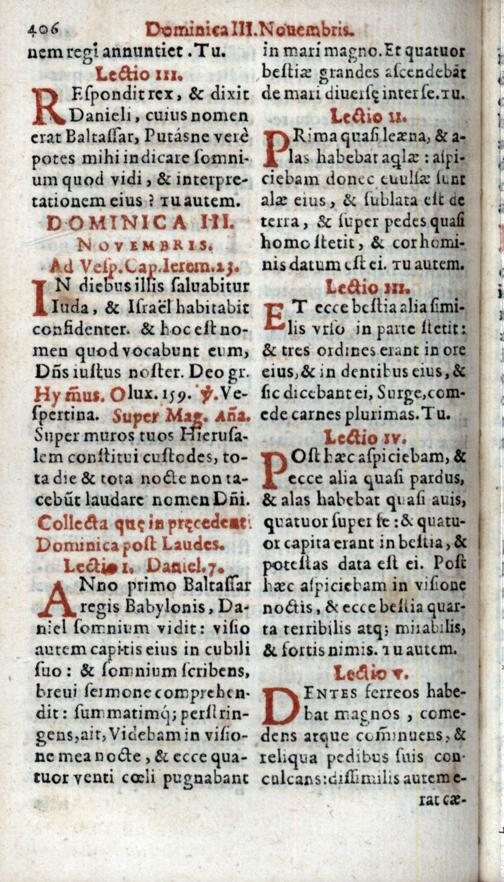 406 Dominica III. Nouembris.
nem regi annuntiet. Tu.
Lectio III.
REspondit rex, & dixit
Danieli, cuius nomen
erat Baltassar, Putásne verè
potes mihi indicare somni-
um quod vidi, & interpre-
tationem eius? Tu autem.
DOMINICA III.
NOVEMBRIS.
Ad Vesp. Cap. Ierem. 23.
IN diebus illis saluabitur
Iuda, & Israël habitabit
confidenter. & hoc est no-
men quod vocabunt eum,
Dñs iustus noster. Deo gr.
Hym̃us. O lux. 159. ℣. Ve-
spertina. Super Mag. Aña.
Super muros tuos Hierusa-
lem constitui custodes, to-
ta die & tota nocte non ta-
cebūt laudare nomen Dñi.
Collecta quę in pręcedenti
Dominica post Laudes.
Lectio I. Daniel. 7.
ANno primo Baltassar
regis Babylonis, Da-
niel somnium vidit: visio
autem capitis eius in cubili
suo: & somnium scribens,
breui sermone comprehen-
dit: summatimq; perstrin-
gens, ait, Videbam in visio-
ne mea nocte, & ecce qua-
tuor venti cœli pugnabant
in mari magno. Et quatuor
bestiæ grandes ascendebāt
de mari diuersę inter se. Tu.
Lectio II.
PRima quasi leæna, & a-
las habebat aq̃læ: aspi-
ciebam donec euulsæ sunt
alæ eius, & sublata est de
terra, & super pedes quasi
homo stetit, & cor homi-
nis datum est ei. Tu autem.
Lectio III.
ET ecce bestia alia simi-
lis vrso in parte stetit:
& tres ordines erant in ore
eius, & in dentibus eius, &
sic dicebant ei, Surge, com-
ede carnes plurimas. Tu.
Lectio IV.
POst hæc aspiciebam, &
ecce alia quasi pardus,
& alas habebat quasi auis,
quatuor super se: & quatu-
or capita erant in bestia, &
potestas data est ei. Post
hæc aspiciebam in visione
noctis, & ecce bestia quar-
ta terribilis atq; mirabilis,
& fortis nimis. Tu autem.
Lectio V.
DENTES ferreos habe-
bat magnos, come-
dens atque com̃inuens, &
reliqua pedibus suis con-
culcans: dissimilis autem e-
rat cæ-